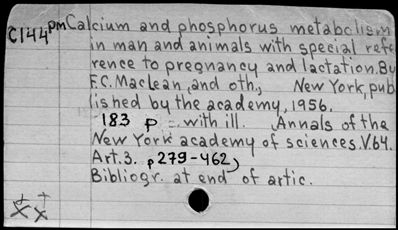 C144pm Calcium and phosphorus metabolism
in man and animals with special refe
rence to pregnancy and lactation. By
F.C. MacLean, and oth., New York, pub
lished by the academy, 1956.
183 p. with ill. Annals of the
New York academy of sciences. V.64.
Art.3. p279-462)
Bibliogr. at end of artic.